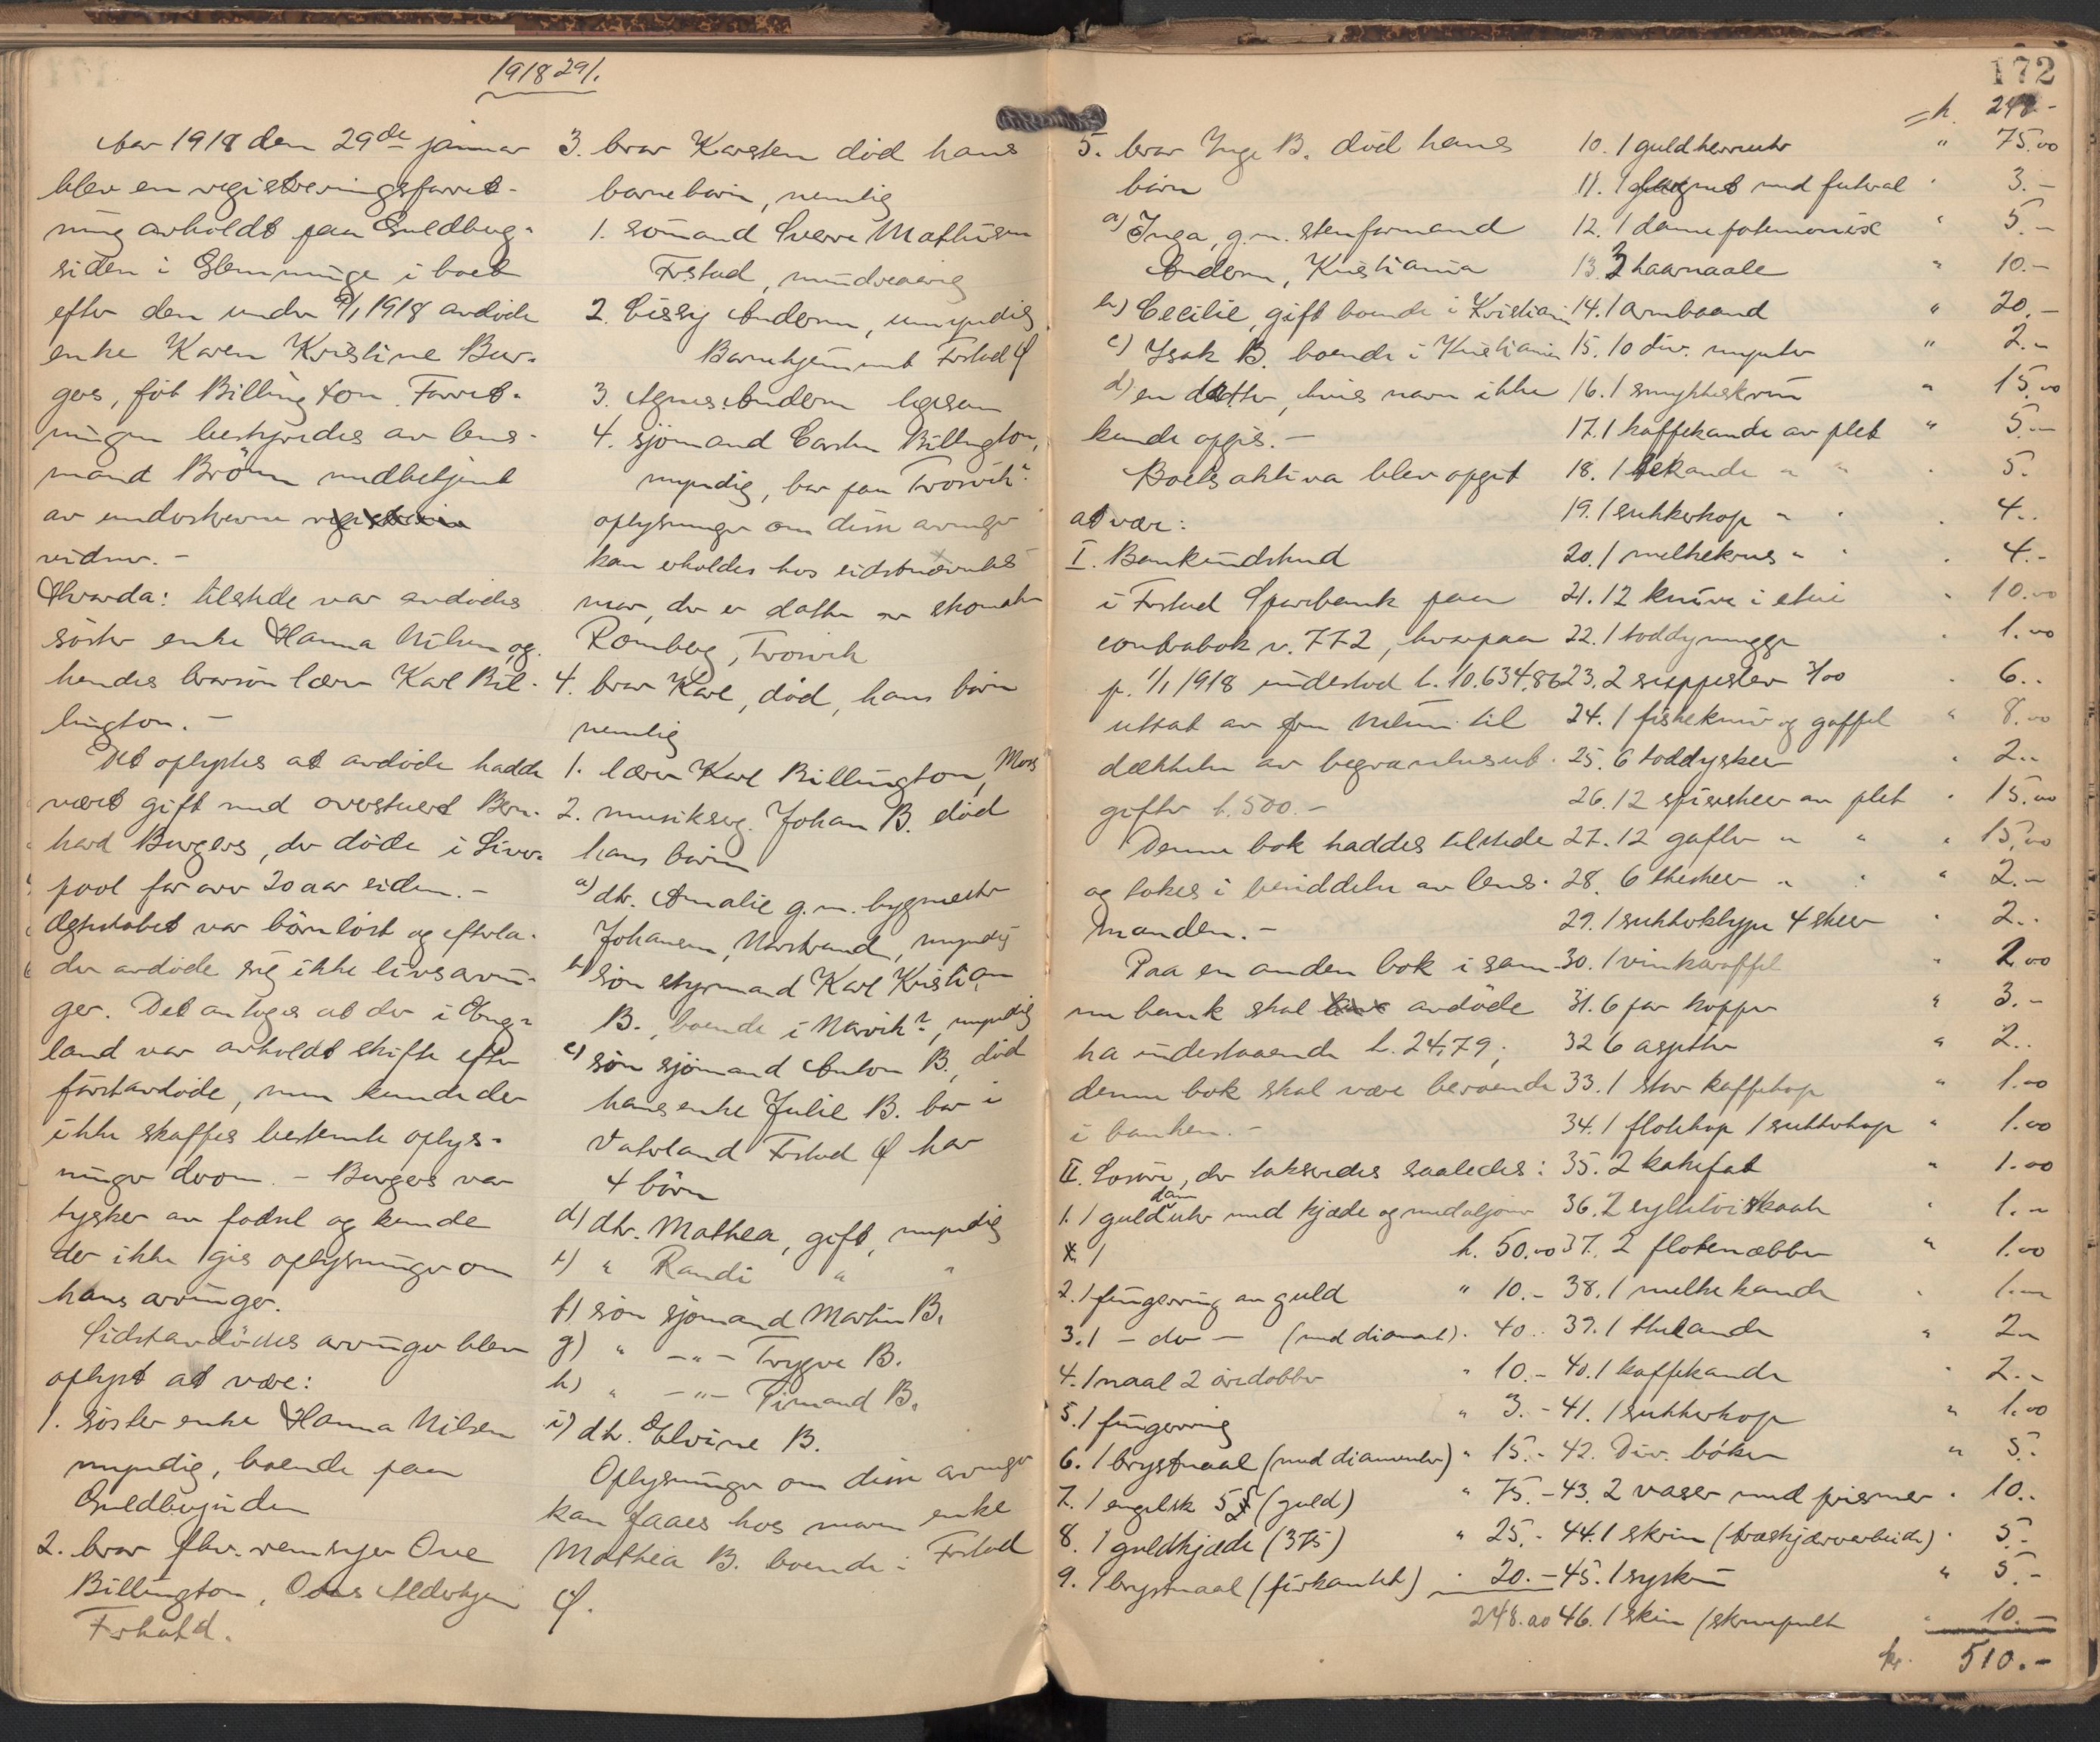 1918 29/1.
Aar 1918 den 29de januar
blev en registreringsforret-
ning avholdt paa Guldberg-
siden i Glemminge i boet
efter den under 9/1 1918 avdöde
enke Karen Kristine Bur-
gers, föt Billington. Forret-
ningen bestyredes av lens-
mand Bröm medbetjent
av underskrevne
vidner. -
Hvorda: tilstede var avdödes
söster enke Hanna Nilsen og
hendes brorsön lærer Karl Bil-
lington. -
Det oplystes at avdöde hadde
været gift med overstuert Bern-
hard Burgers, der döde i Liver-
pool for over 20 aar siden. -
Egteskabet var barnlöst og efterla-
der avdöde sig ikke livsarvin-
ger. Det antoges at der i Eng-
land var avholdt skifte efter
förstavdöde, men kunde der
ikke skaffes bestemte oplys-
ninger derom. - Burgers var
tysker av fodsel og kunde
der ikke gis oplysninger om
hans arvinger.
Sidstavdödes arvinger blev
oplyst at være:
1. söster enke Hanna Nilsen
myndig, boende paa
Guldbergsiden
2. bror fhv. remsnger Ove
Billington, Oves Alderhjem
Frstad.
3. bror Karsten död hans
barnebarn, nemlig
1. sömand Sverre Mathisen
Frstad, mindreaarig
2. Cissy Andersen, umyndig
Barnehjemmet Frstad Ø
3. Agnes Andersen ligesom
4. sjömand Carsten Billington,
myndig, bor paa Trosvik?
oplysninger om disse arvinger
kan erholdes hos sidstnævntes
mor, der er datter av skomaker
Romberg, Trosvik
4. bror Karl, död, hans börn
nemlig
1. lærer Karl Billington, Moss
2. musikserg. Johan B. död
hans börn
a) dtr. Amalie g.m. bygmester
Johansen, Narstrand, myndig
b) sön styrmand Karl Kristian
B., boende i Narvik?, myndig
c) sön sjömand Anton B., död
hans enke Julie B. bor i
Vaterland Frstad Ø har
4 börn
d) dtr. Mathea, gift, myndig
e) " Randi " "
f) sön sjömand Martin B.
g) " -"- Trygve B.
h) " -"- B.
i) dtr. Elvine B.
Oplysninger om disse arvinger
kan faaes hos moren enke
Mathea B. boende i Frstad
Ø.
172
5. bror Inge B. död hans
börn
a) Inga, g.m. stenformand
Andersen, Kristiania
b) Cecilie, gift boende i Kristiania
c) Isak B. boende i Kristiania
d) en datter, hvis navn ikke
kunde opgis. -
Boets aktiva blev opgit
at være:
I. Bankindskud
i Frstad Sparebank paa
contrabok n. 772, hvorpaa
p. 1/1 1918 indestod k. 10.634,86
uttat av fru Nilsen til
dækkelse av begravelsesut-
gifter k. 500. -
Denne bok haddes tilstede
og tokes i besiddelse av lens-
manden. -
Paa en anden bok i sam-
me bank skal avdöde
ha indestaaende k. 24,79;
denne bok skal være beroende
i banken. -
II. Lösöre, der taksertes saaledes:
1. 1 guld dam uhr med kjæde og medaljon
k. 50.00
2. 1 fingerring av guld " 10.-
3. 1 - do - (med diamant) . 40..
4. 1 naal 2 öredobber " 10.-
5. 1 fingerring " 3.-
6. 1 brystnaal (med diamanter) " 15.-
7. 1 engelsk 5 £ (guld) " 75.-
8. 1 guldkjæde (375) " 25.-
9. 1 brystnaal (firkantet) . 20.-
248.00
= k. 248-
10. 1 guldherreuhr " 75.00
11. 1 med futeral . 3.-
12. 1 dameportemonnæ " 5.-
13. 3 haarnaale " 10.-
14. 1 armbaand " 20.-
15. 10 div. mynter " 2.-
16. 1 smykkeskrin " 15.00
17. 1 kaffekande av plet " 5.-
18. 1 tekande " " . 5.
19. 1 sukkerkop " " . 4..
20. 1 melkekrus " " . 4.-
21. 12 knive i etui . 10.00
22. 1 toddymugge . 1.00
23. 2 suppeslev 3/00 . 6..
24. 1 fiskekniv og gaffel " 8.00
25. 6 toddyskeer . 2..
26. 12 spiseskeer av plet . 15.00
27. 12 gafler " " . 15.00
28. 6 theskeer " " " 2.-
29. 1 sukkerklype 4 skeer . 2..
30. 1 vinkaraffel . 2.00
31. 6 par kopper " 3.-
32 6 asjetter " 2..
33. 1 stor kaffekop " 1.00
34. 1 flötekop 1 sukkerkop " 1.00
35. 2 kakefat " 1.00
36. 2 syltetöiskaaler . 1.-
37. 2 flötenæbber " 1.00
38. 1 melkekande . 1.-
39. 1 thekande " 2.-
40. 1 kaffekande . 2..
41. 1 sukkerkop " 1.00
42. Div. böker " 5.-
43. 2 vaser med prismer . 10..
44. 1 skrin (træskjærerarbeide) . 5.-
45. 1 syskrin " 5.-
46. 1 skrin (skrivepult . 10.-
kr. 510.-